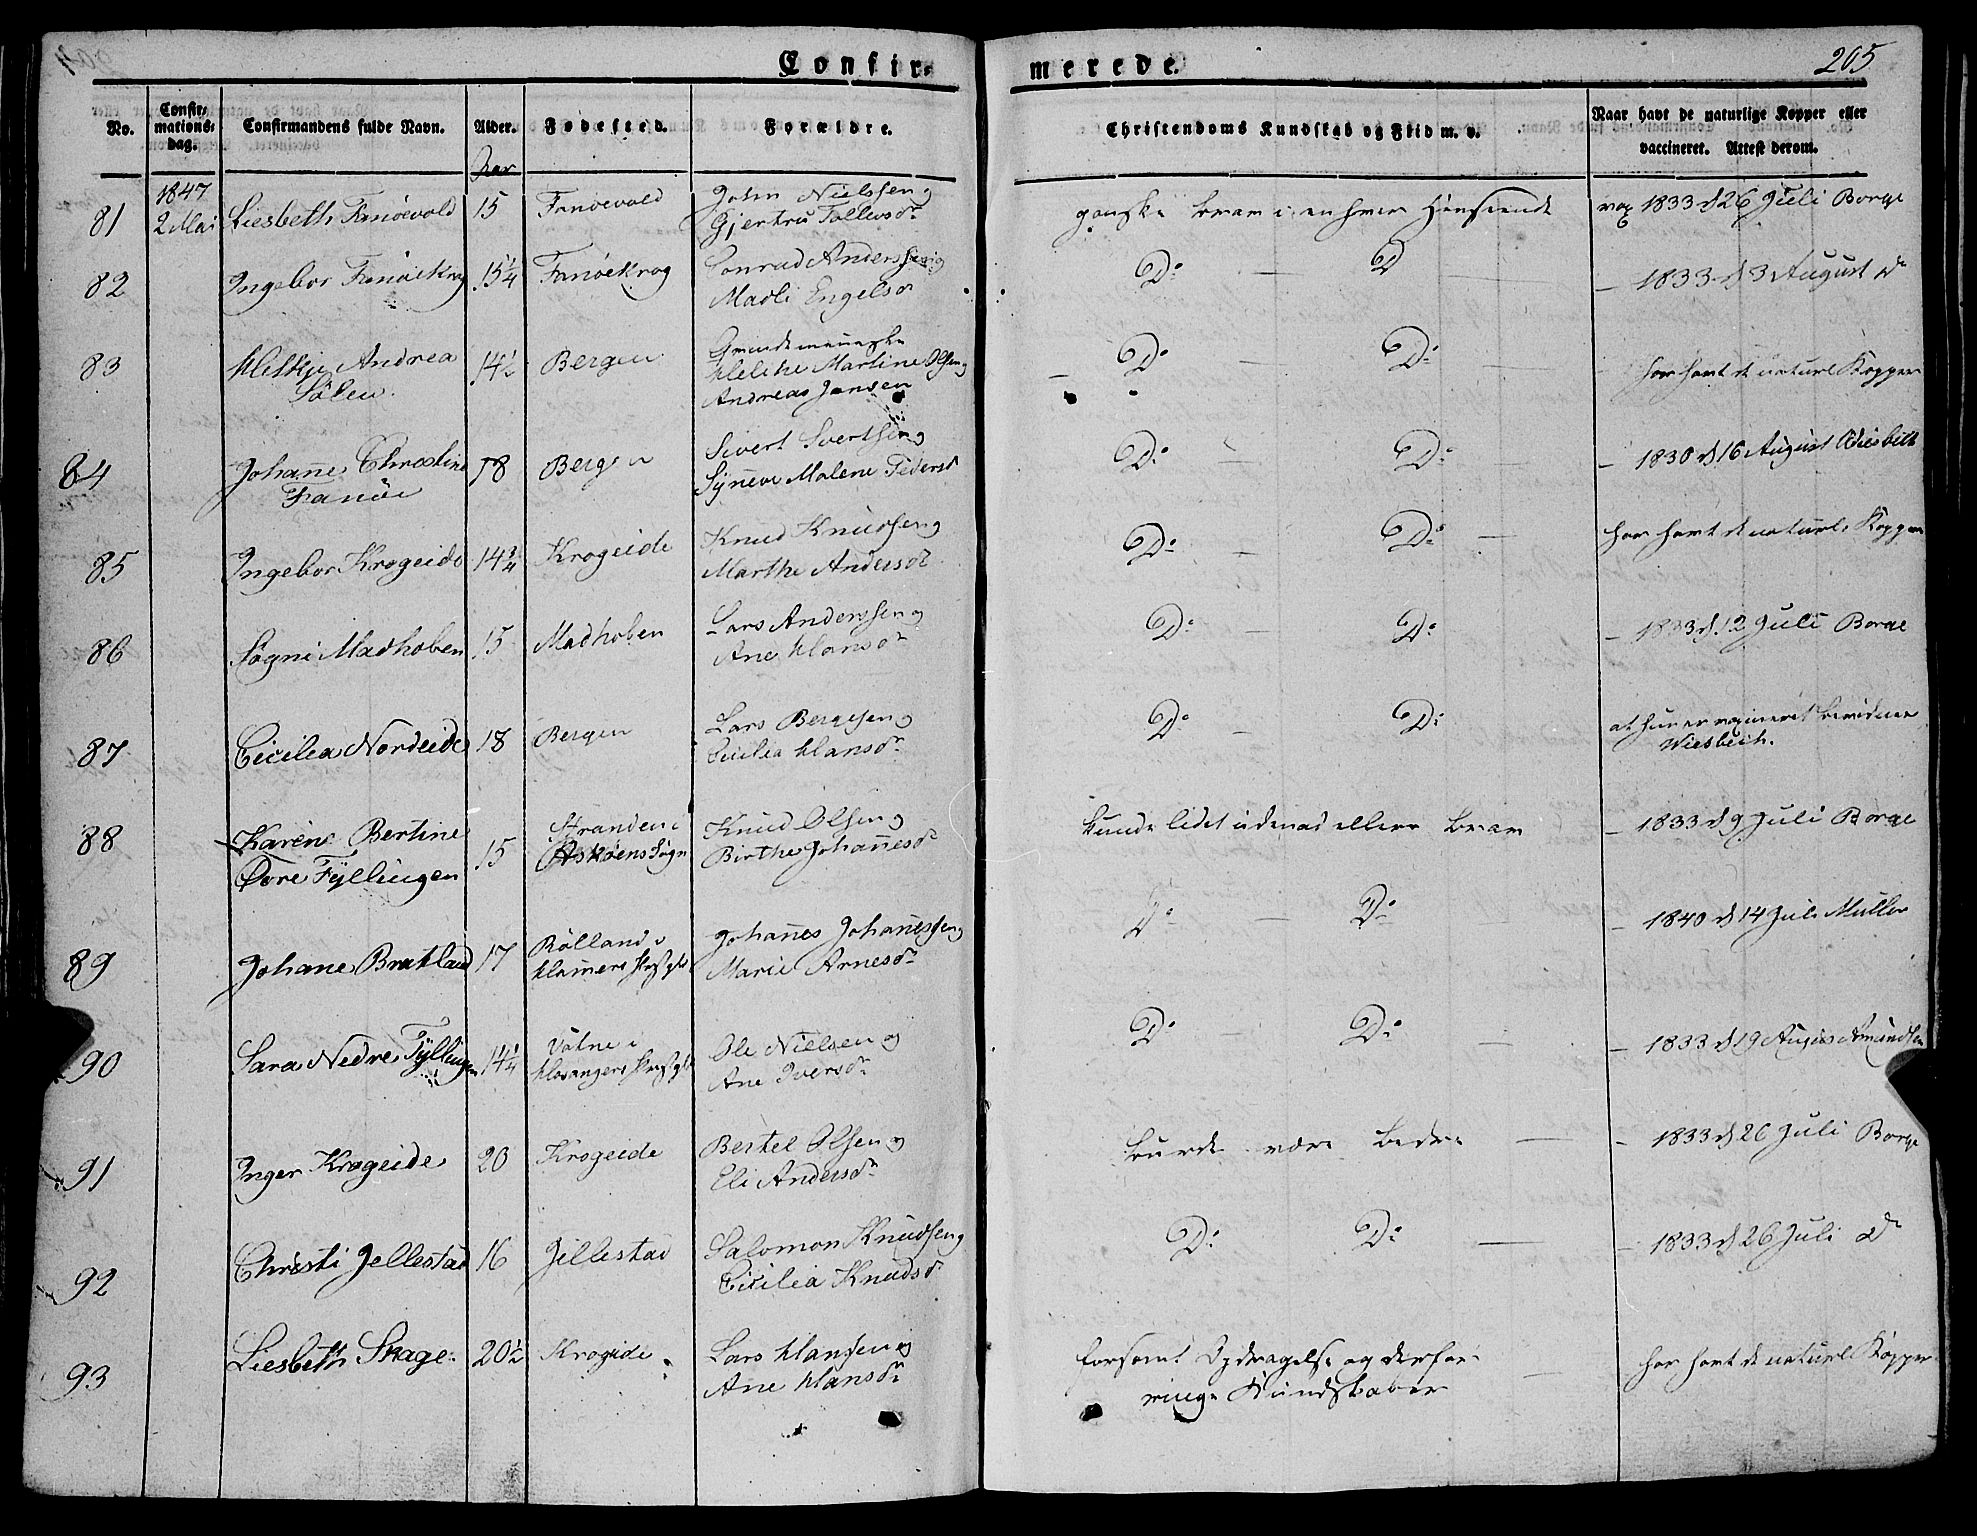 Confir-
merede.
205
No.
Confir-
mations-
dag.
Confirmandens fulde Navn.
Alder.
Fødested.
Forældre.
Christendoms Kundskab og Flid m. v.
Naar havt de naturlige Kopper eller
vaccineret. Attest derom.
Aar
1847
81 2 Mai Liesbeth Fanöevold 15 Fanöevold John Nielssen og
Gjertru Tollevsdr
ganske bra i enhver Henseende
vax 1833 d 26 Juli Borge
82 Ingebor Fanöekrog 15 1/4 Fanöekrog Conrad Anderssen og
Madli Engelsdr
Do — D —
— 1833 d 3 August do
83 Andrea
14 1/2 Bergen
Martine Olsen og
Andreas Jansen
Do — Do —
har havt de naturl Kopper
84 Johanne Christine 18 Bergen Sivert Sivertsen og
Fanöe
Synneve Malene Pedersdr
Do — Do —
— 1830 d 16 August Wiesbech
85 Ingebor Krogeide 14 3/4 Krogeide Knud Knudsen og
Marthe Andersdr
Do — Do —
har havt de naturl. Kopper
86 Sögni Madhoben 15 Madhoben Lars Anderssen og
Ane Hansdr
Do — Do
— 1833 d. 12 Juli Borge
87 Cicilea Nordeide 18 Bergen Lars Bergesen og
Cicilia Hansdr
Do — Do
at hun er vaxineret bevidner
Wiesbech.
88 Karene Bertine 15 Stranden i
Askøens Sogn
Övre Fyllingen
Knud Olsen og
Birthe Johannesdr
kunde lidet udenad ellers bra
— 1833 d 9 Juli Borge
89 Johane Bratland 17 Rölland i
Hammers Præstgld
Johannes Johannessen og
Marie Arnesdr
Do — Do —
— 1840 d 14 Juli Müller
90 Sara Nedre Fyllingen 14 1/4 Vatne i
Hosangers Præstgld
Ole Nielsen og
Ane Iversdr
Do — Do —
— 1833 d 19 Amundsen
91 Inger Krogeide 20 Krogeide Bertel Olsen og
Eli Andersdr
burde være bedre —
— 1833 d 26 Juli Borge
92 Christi Jellestad 16 Jellestad Salomon Knudsen og
Cicilia Knudsdr
Do Do —
— 1833 d 26 Juli do
93 Liesbeth Skage 20 1/2 Krogeide Lars Hansen og
Ane Hansdr
forsømt Opdragelse og derfor
ringe Kundskaber —
har havt de naturl Kopper